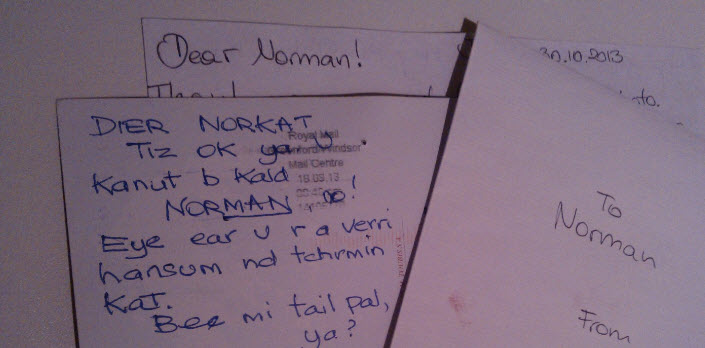 Dear Norman!
30.10.2013
to.
DIER NORKAT
Tiz OK ya U
Kanut b Kald
NORMAN, oo!
Eye ear u r a verri
hansum nd tchrmin
Kat.
Bee mi tail pal,
ya?
Royal Mail
Windsor
Mail Centre
18.09.13
To
Norman
From